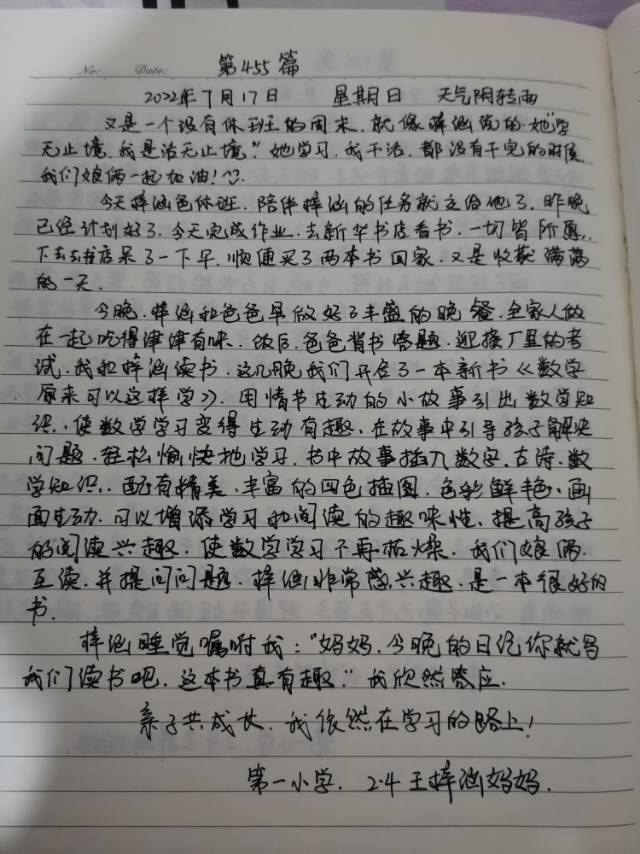 第455篇
No: Date:
2022年7月17日 星期日 天气阴转雨
又是一个没有休班的周末,就像梓涵说的她"学
无止境,我是活无止境。"她学习,我干活,都没有干完的时候,
我们娘俩一起加油!
今天梓涵爸休班,陪伴梓涵的任务就交给他了,昨晚
已经计划好了,今天完成作业,去新华书店看书,一切皆所愿,
下去去书店呆了一下午,顺便买了两本书回家,又是收获满满
的一天。
今晚,梓涵和爸爸早做好了丰盛的晚餐,全家人做
在一起吃得津津有味,饭后,爸爸背书答题,迎接厂里的考
试,我和梓涵读书,这几晚我们开启了一本新书《数学
原来可以这样学》,用情节生动的小故事引出数学知
识,使数学学习变得生动有趣,在故事中引导孩子解决
问题,轻松愉快地学习,书中故事插入数字、古诗、数
学知识,配有精美、丰富的四色插图,色彩鲜艳、画
面生动,可以增添学习和阅读的趣味性,提高孩子
的阅读兴趣,使数学学习不再枯燥,我们娘俩
互读,并提问问题,梓涵非常感兴趣,是一本很好的
书.
梓涵睡觉嘱咐我:"妈妈,今晚的日记你就写
我们读书吧,这本书真有趣."我欣然答应.
亲子共成长,我依然在学习的路上!
第一小学. 2.4 王梓涵妈妈.